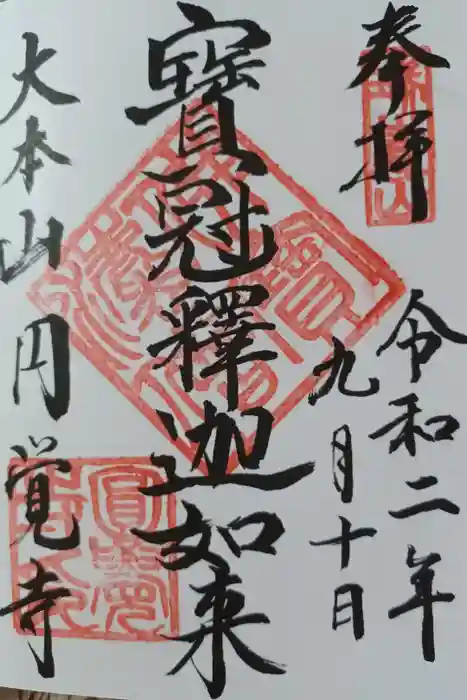 奉拝
令和二年
九月十日
寳冠釋迦如来
大本山円覚寺